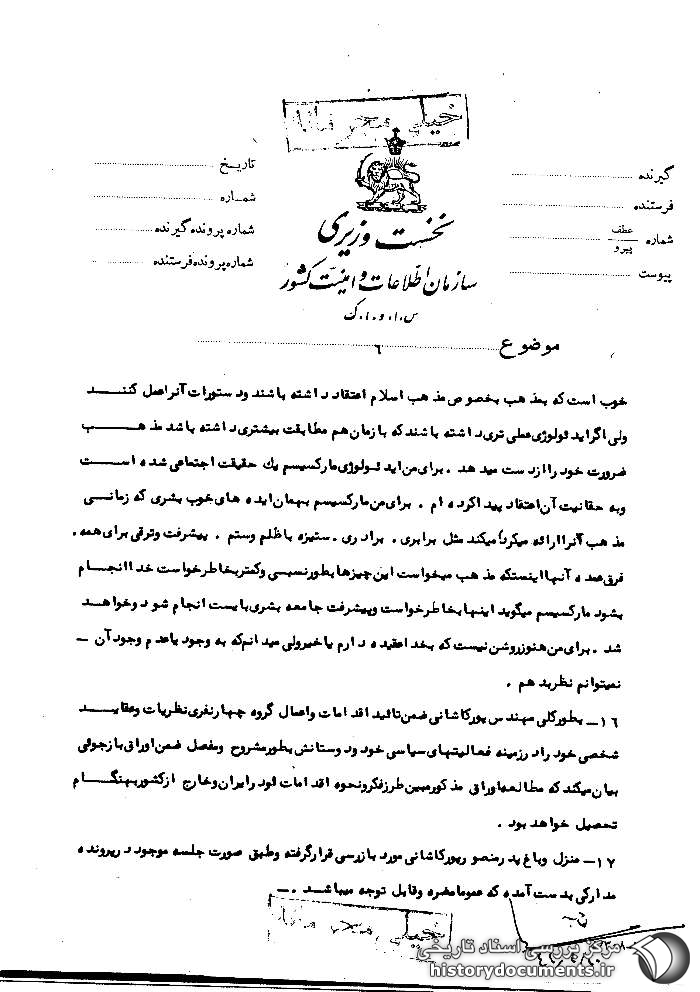 خیلی محرمانه
گیرنده
فرستنده
شماره عطف پیرو
پیوست
تاریخ
شماره
شماره پرونده گیرنده
شماره پرونده فرستنده
نخست وزیری
سازمان اطلاعات و امنیت کشور
س.ا.و.ا.ک
موضوع
۶
خوب است که بمذهب بخصوص مذهب اسلام اعتقاد داشته باشند ودستورات آنراعمل کننـــد
ولی اگراید ئولوژی عملی تری داشته باشند که بازمان هم مطابقت بیشتری داشته باشد مذهـــب
ضرورت خود راازدست میدهد . برای من ایدئولوژی مارکسیسم یك حقیقت اجتماعی شده اســت
وبه حقانیت آن اعتقاد پیداکرده ام . برای من مارکسیسم بهمان ایده های خوب بشری که زمانــی
مذهب آنراارائه میکرد میکند مثل برابری . برادری . ستیزه باظلم وستم . پیشرفت وترقی برای همه .
فرق عمده آنهااینستکه مذهب میخواست این چیزها بطورنسبی وکمتربخاطرخواست خداانجــام
بشود مارکسیسم میگوید اینهابخاطرخواست وپیشرفت جامعه بشری بایست انجام شود وخواهــد
شد . برای من هنوزروشن نیست که بخداعقیده دارم یاخیرولی میدانم که به وجود یاعدم وجود آن ـ
نمیتوانم نظربدهم .
۱۶ـ بطورکلی مهندس پورکاشانی ضمن تائید اقدامات واعمال گروه چهارنفری نظریات وعقایــد
شخصی خود رادرزمینه فعالیتهای سیاسی خود ودوستانش بطورمشروح ومفصل ضمن اوراق بازجوئی
بیان میکند که مطالعه اوراق مذکورمبین طرزفکرونحوه اقدامات اودرایران وخارج ازکشوربهنگــام
تحصیل خواهد بود .
۱۷ـ منزل وباغ پدرمنصورپورکاشانی مورد بازرسی قرارگرفته وطبق صورت جلسه موجود درپرونده
مدارکی بدست آمده که عموما مضره وقابل توجه میباشـد . ــ
خیلی محرمانه
مرکز بررسی اسناد تاریخی
historydocuments.ir